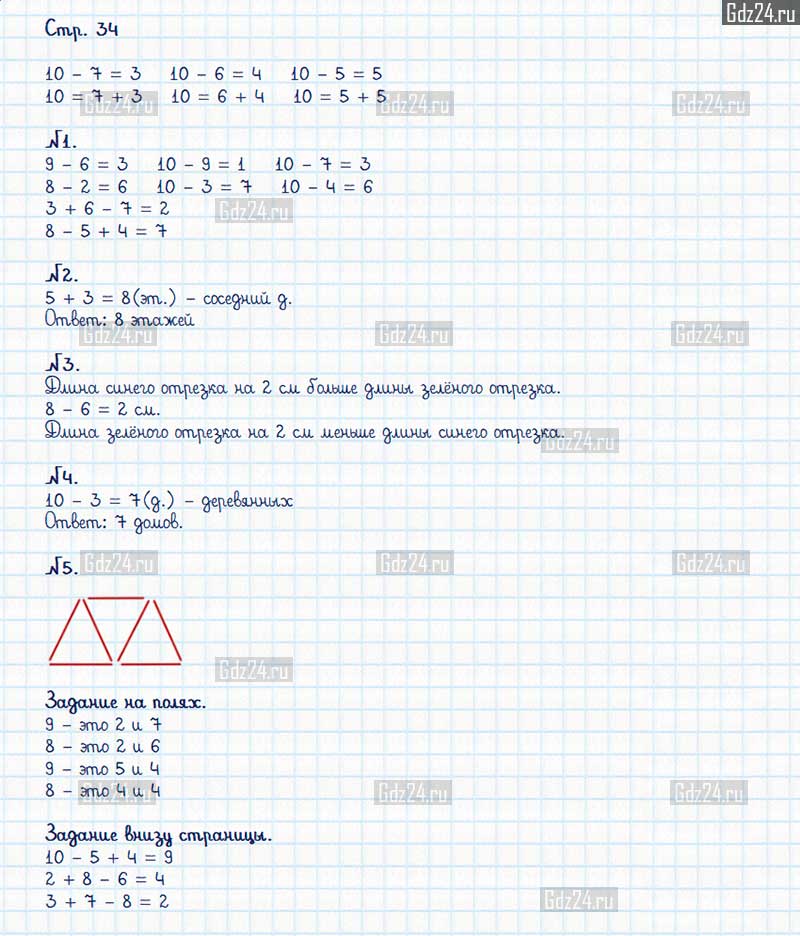 Gdz24.ru
Стр. 34
10 - 7 = 3 10 - 6 = 4 10 - 5 = 5
10 = 7 + 3 10 = 6 + 4 10 = 5 + 5
Gdz24.ru Gdz24.ru Gdz24.ru
№1.
9 - 6 = 3 10 - 9 = 1 10 - 7 = 3
8 - 2 = 6 10 - 3 = 7 10 - 4 = 6
3 + 6 - 7 = 2
Gdz24.ru
8 - 5 + 4 = 7
№2.
5 + 3 = 8(эт.) - соседний д.
Ответ: 8 этажей
Gdz24.ru Gdz24.ru Gdz24.ru
№3.
Длина синего отрезка на 2 см больше длины зелёного отрезка.
8 - 6 = 2 см.
Длина зелёного отрезка на 2 см меньше длины синего отрезка.
Gdz24.ru
№4.
10 - 3 = 7(д.) - деревянных
Ответ: 7 домов.
Gdz24.ru Gdz24.ru Gdz24.ru
№5.
Gdz24.ru
Задание на полях.
9 - это 2 и 7
8 - это 2 и 6
9 - это 5 и 4
8 - это 4 и 4
Gdz24.ru Gdz24.ru Gdz24.ru
Задание внизу страницы.
10 - 5 + 4 = 9
2 + 8 - 6 = 4
3 + 7 - 8 = 2
Gdz24.ru